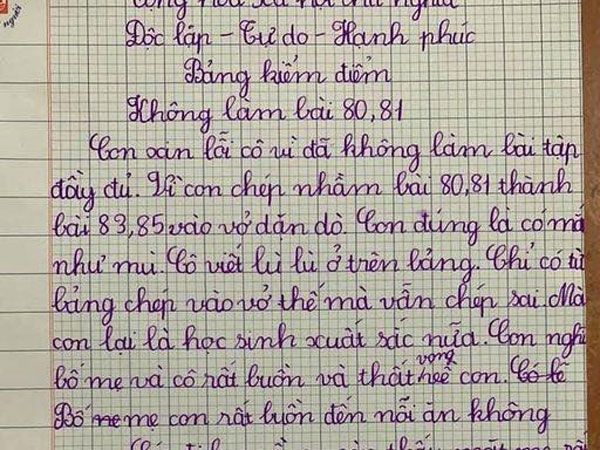 Độc lập - Tự do - Hạnh phúc
Bảng kiểm điểm
Không làm bài 80,81
Con xin lỗi cô vì đã không làm bài tập
đầy đủ. Vì con chép nhầm bài 80,81 thành
bài 83,85 vào vở dặn dò. Con đúng là có mắ
như mù. Cô viết lù lù ở trên bảng. Chỉ có từ
bảng chép vào vở thế mà vẫn chép sai. Mà
con lại là học sinh xuất sắc nữa. Con nghĩ
bố mẹ và cô rất buồn và thất vọng về con. Có lẽ
Bố mẹ con rất buồn đến nỗi ăn không